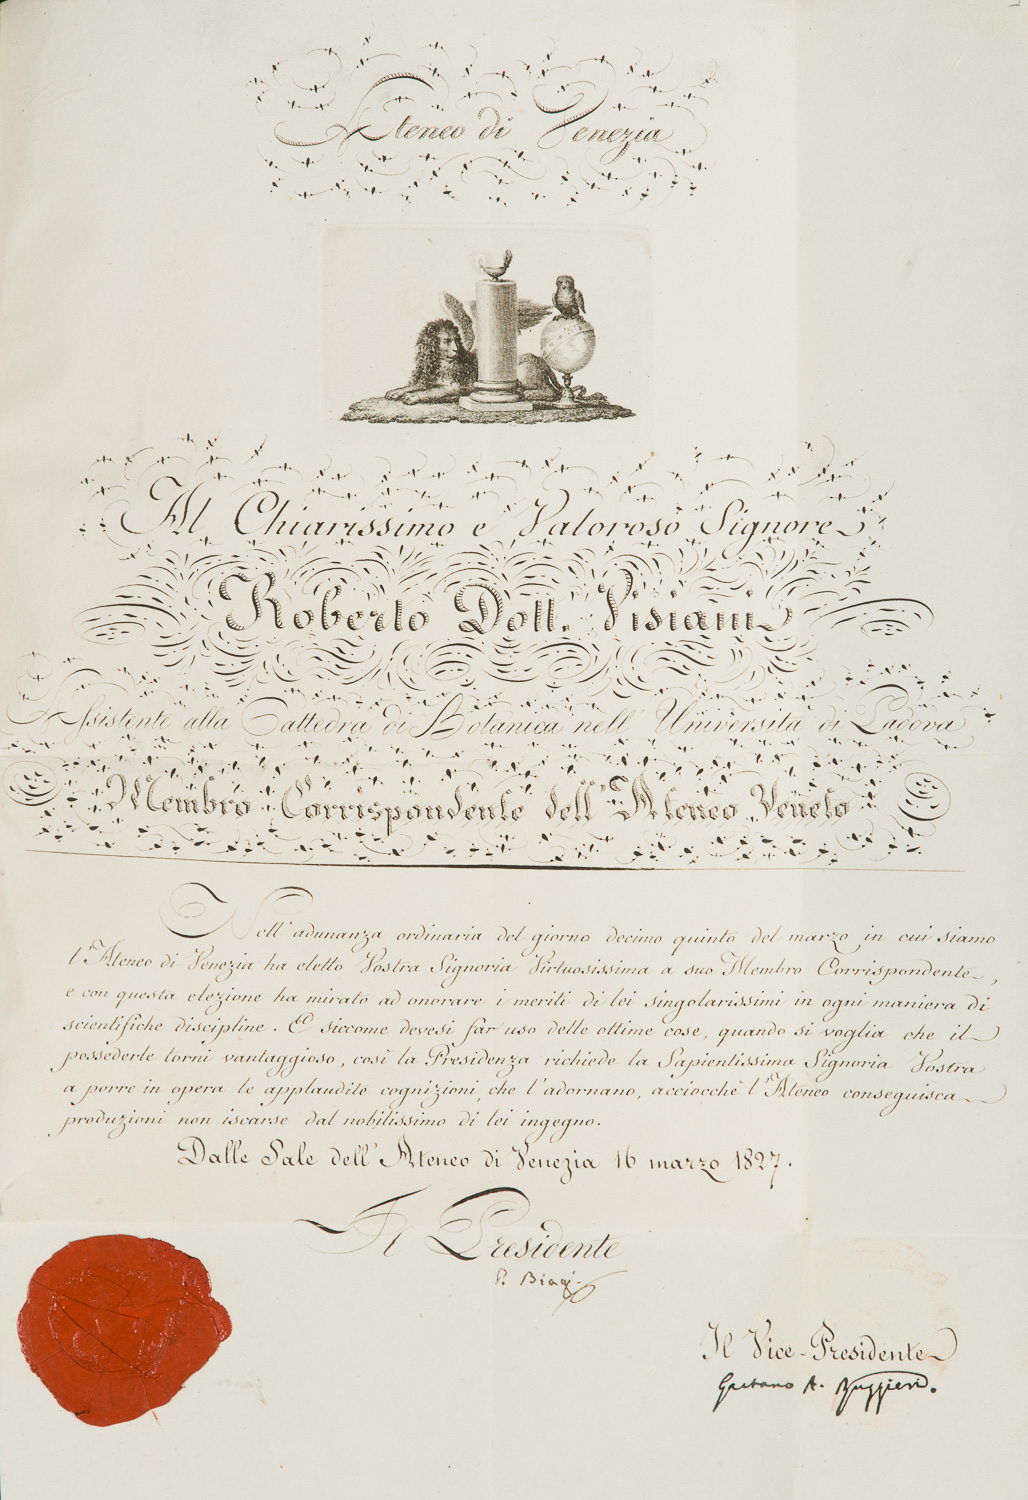 Ateneo di Venezia
Al Chiarissimo e Valoroso Signore
Roberto Dott. Visiani
Assistente alla Cattedra di Botanica nell' Università di Padova
Membro Corrispondente dell' Ateneo Veneto
Nell' adunanza ordinaria del giorno decimo quinto del marzo in cui siamo
l'Ateneo di Venezia ha eletto Vostra Signoria Virtuosissima a suo Membro Corrispondente,
e con questa elezione ha mirato ad onorare i meriti di lei singolarissimi in ogni maniera di
scientifiche discipline. E siccome devesi far uso delle ottime cose, quando si voglia che il
possederle torni vantaggioso, così la Presidenza richiede la Sapientissima Signoria Vostra
a porre in opera le applaudite cognizioni, che l'adornano, acciocchè l'Ateneo conseguisca
produzioni non iscarse dal nobilissimo di lei ingegno.
Dalle Sale dell' Ateneo di Venezia 16 marzo 1827.
Il Presidente
P. Biagi
Il Vice-Presidente
Gaetano A. Ruggieri.